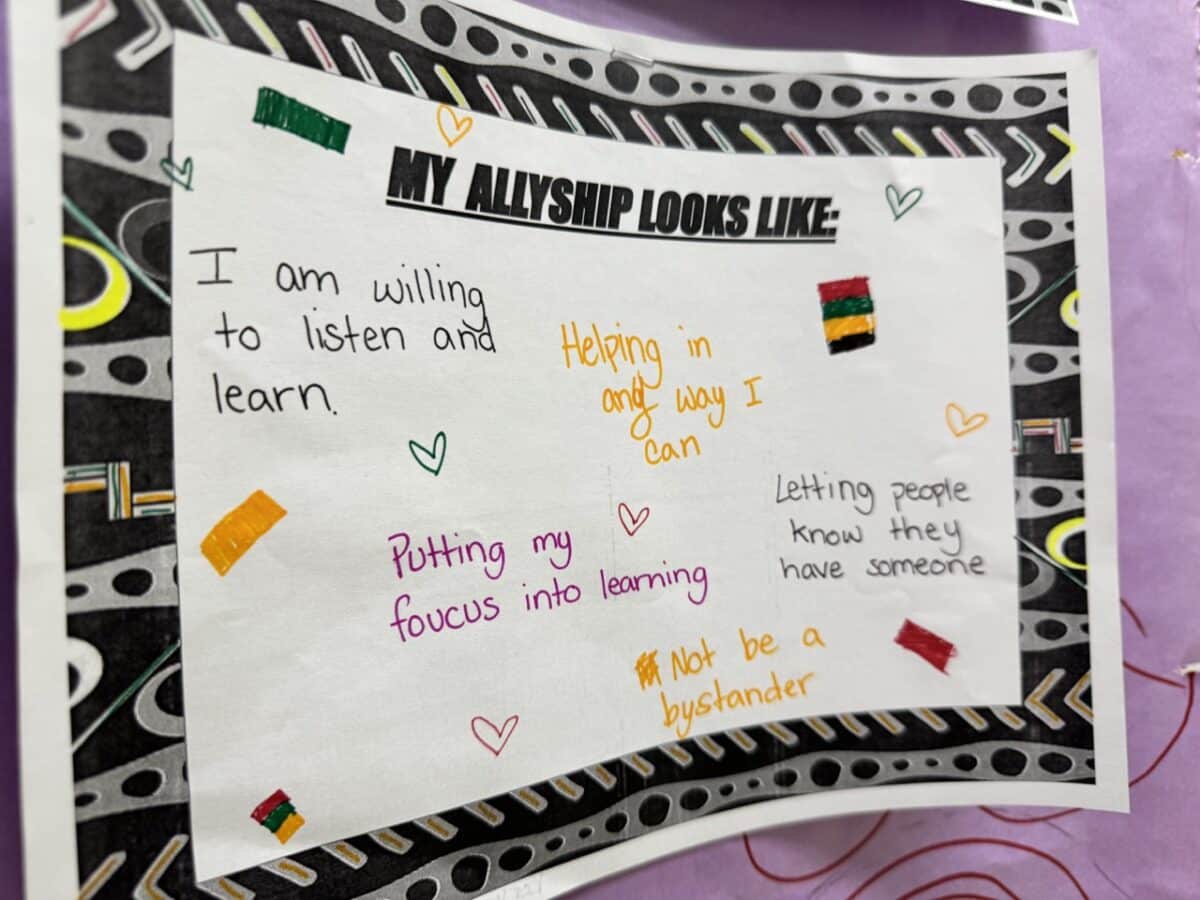 MY ALLYSHIP LOOKS LIKE:
I am willing
to listen and
learn.
Helping in
any way I
can
Letting people
know they
have someone
Putting my
foucus into learning
Not be a
bystander